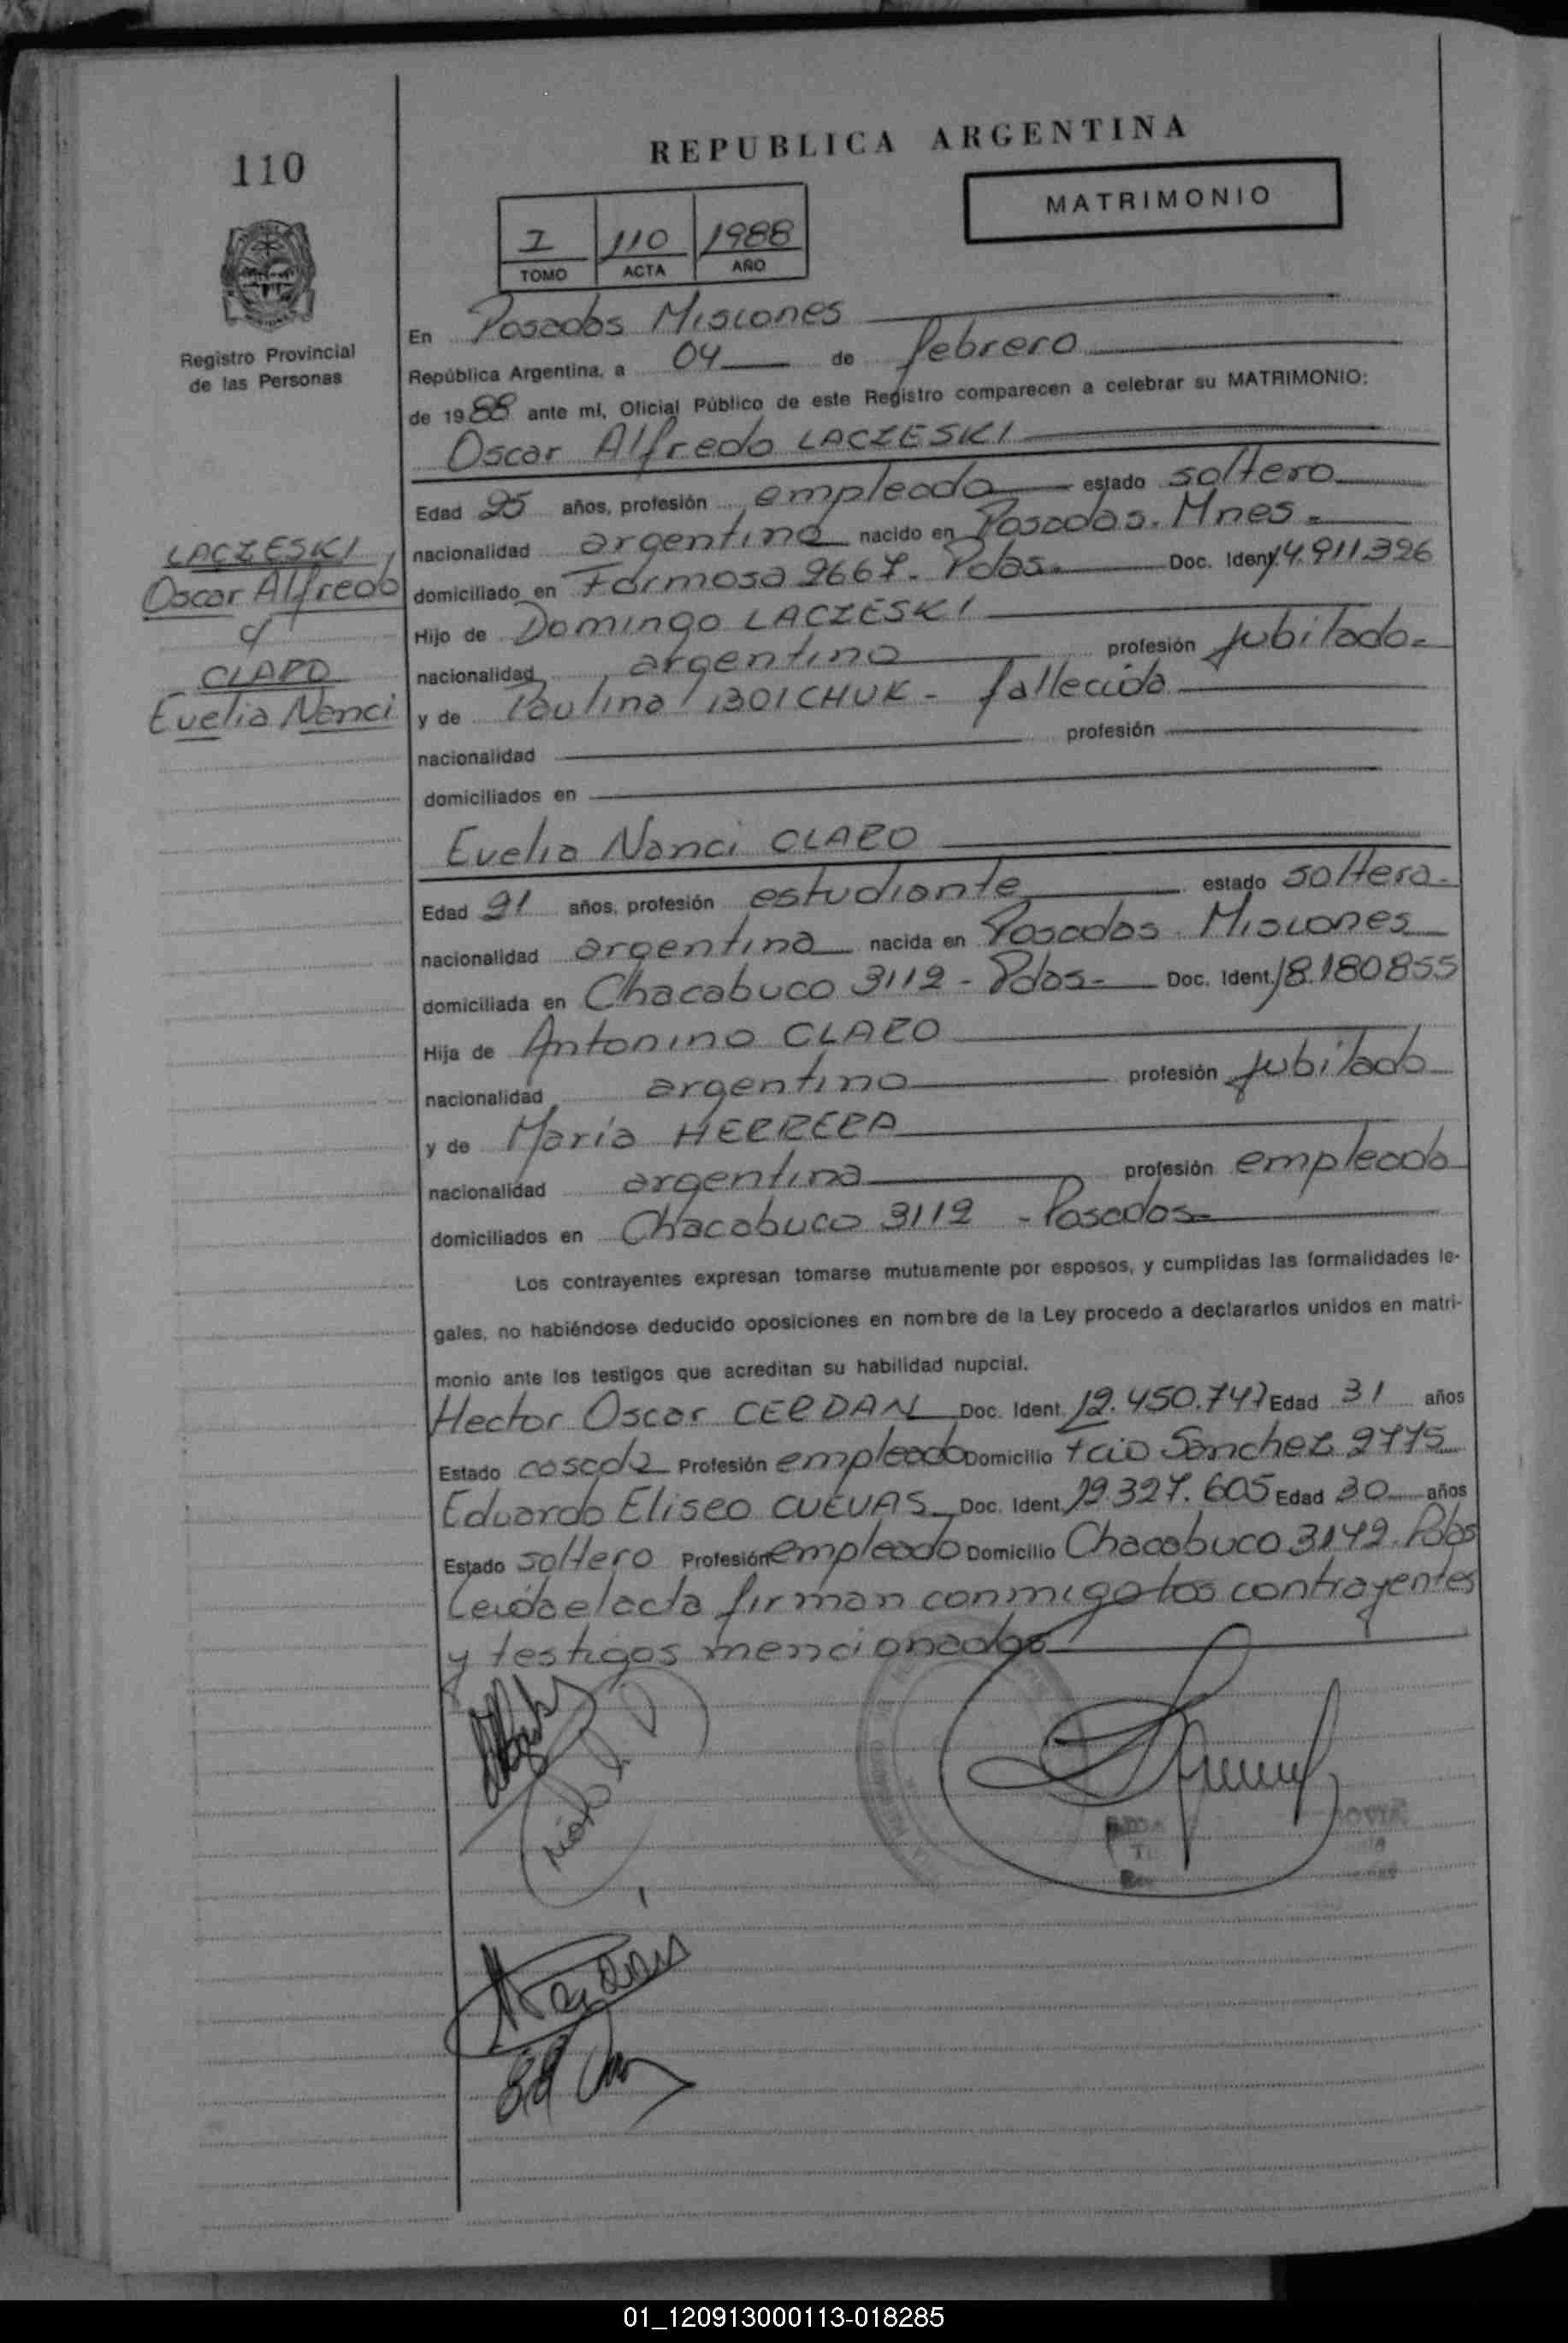 REPUBLICA ARGENTINA
110
MATRIMONIO
I 110 1988
TOMO ACTA AÑO
Registro Provincial
de las Personas
En Posadas Misiones
República Argentina, a 04 de febrero
de 1988 ante mí, Oficial Público de este Registro comparecen a celebrar su MATRIMONIO:
Oscar Alfredo LACZESKI
Edad 25 años, profesión empleado estado soltero
nacionalidad argentina nacido en Posadas. Mnes.
domiciliado en Formosa 2667. Pdas. Doc. Ident. 14.911.326
Hijo de Domingo LACZESKI
nacionalidad argentino profesión jubilado
y de Paulina fallecida
nacionalidad profesión
domiciliados en
LACZESKI
Oscar Alfredo
c/
CLARO
Evelia Nanci
Evelia Nanci CLARO
Edad 21 años, profesión estudiante estado soltera
nacionalidad argentina nacida en Posadas Misiones
domiciliada en Chacabuco 3112 - Pdas- Doc. Ident. 18.180855
Hija de Antonino CLARO
nacionalidad argentino profesión jubilado
y de María HERRERA
nacionalidad argentina profesión empleada
domiciliados en Chacabuco 3112 - Posadas-
Los contrayentes expresan tomarse mutuamente por esposos, y cumplidas las formalidades le-
gales, no habiéndose deducido oposiciones en nombre de la Ley procedo a declararlos unidos en matri-
monio ante los testigos que acreditan su habilidad nupcial.
Hector Oscar CERDAN Doc. Ident. 12.450.747 Edad 31 años
Estado casado Profesión empleado Domicilio Sanchez 2775
Eduardo Eliseo CUEVAS Doc. Ident. 12.327.605 Edad 30 años
Estado soltero Profesión empleado Domicilio Chacabuco 3142. Pdas
Leída el acta firman conmigo los contrayentes
y testigos mencionados
01_120913000113-018285